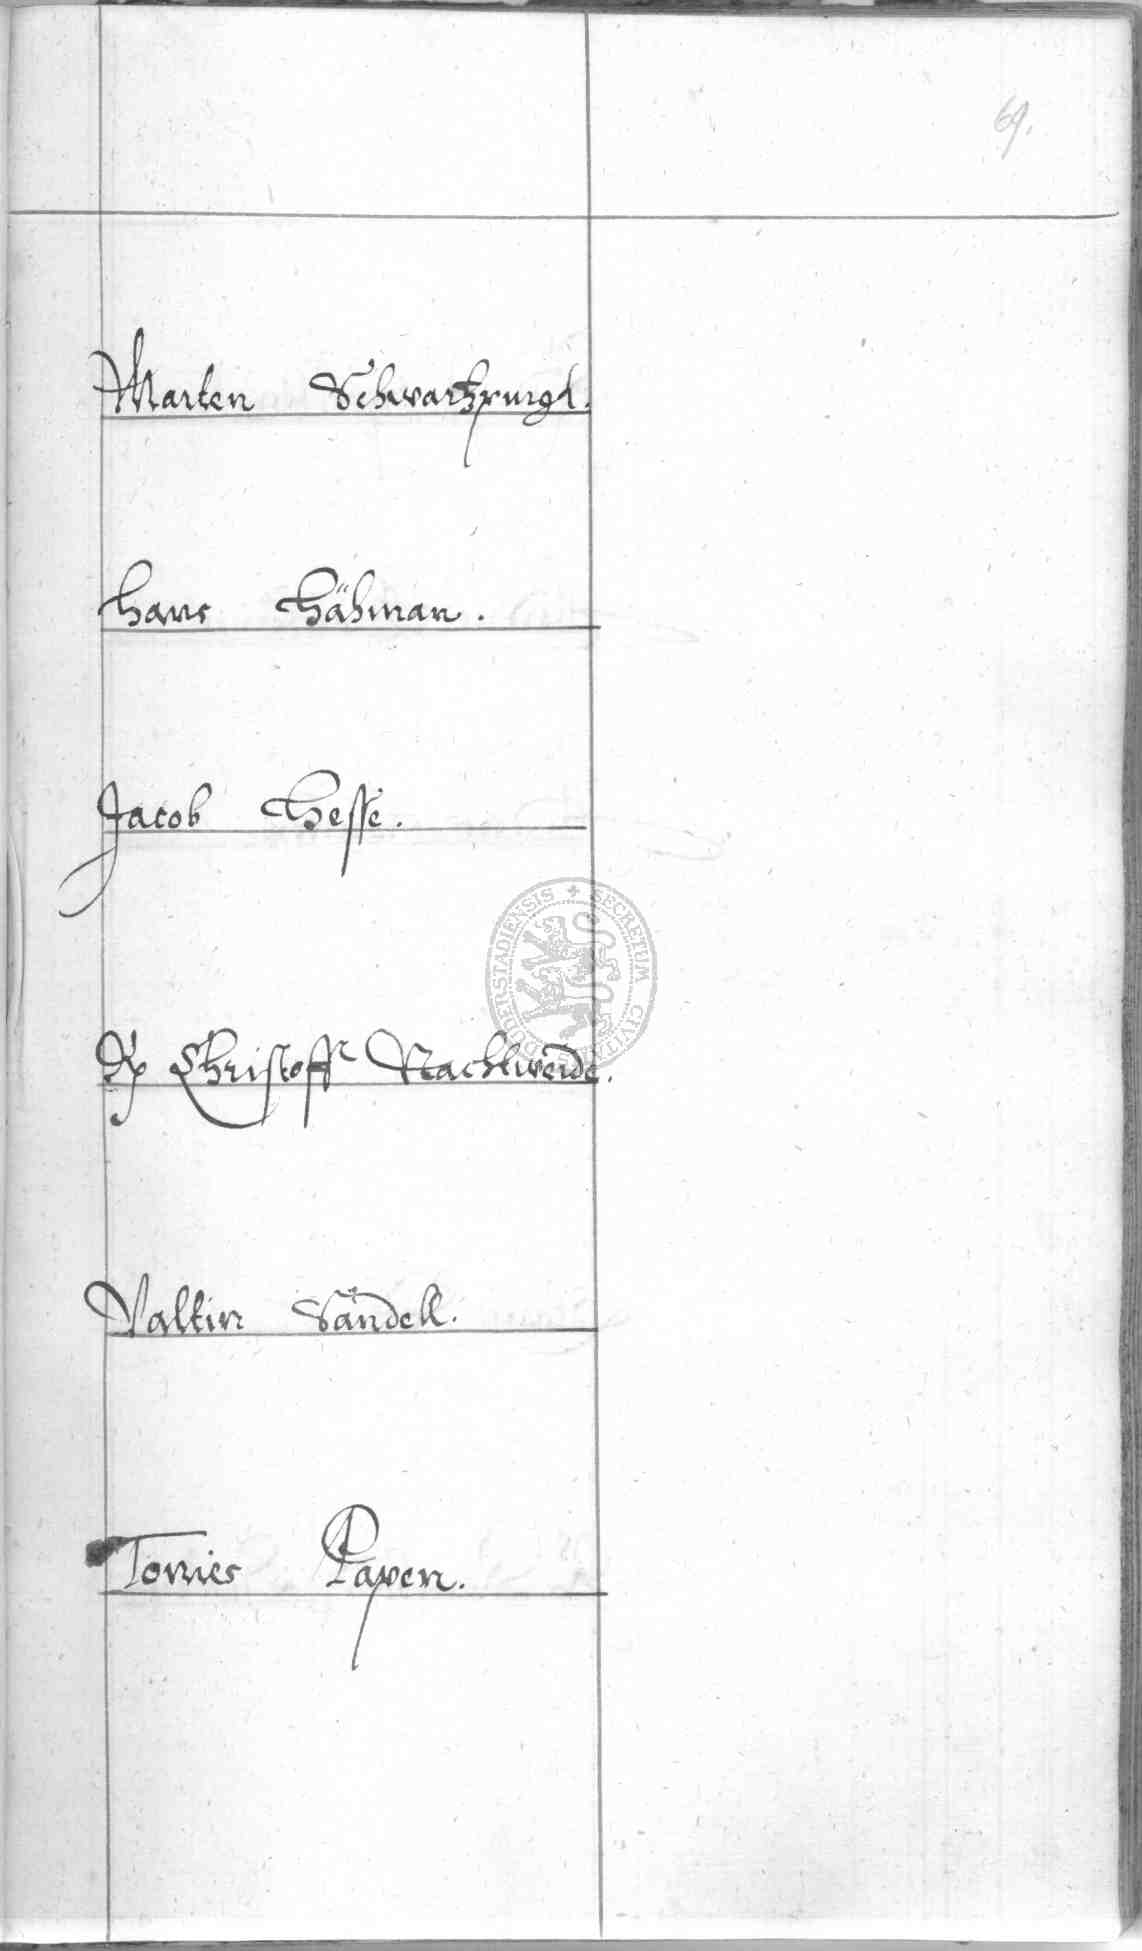 69.
Marten Schwartz
Hans Hähman.
Jacob Hesse.
Christoff Nachtweide.
Valtin Sändell.
Tonnies Papen.
SECRETUM CIVITATIS DUDERSTADIENSIS